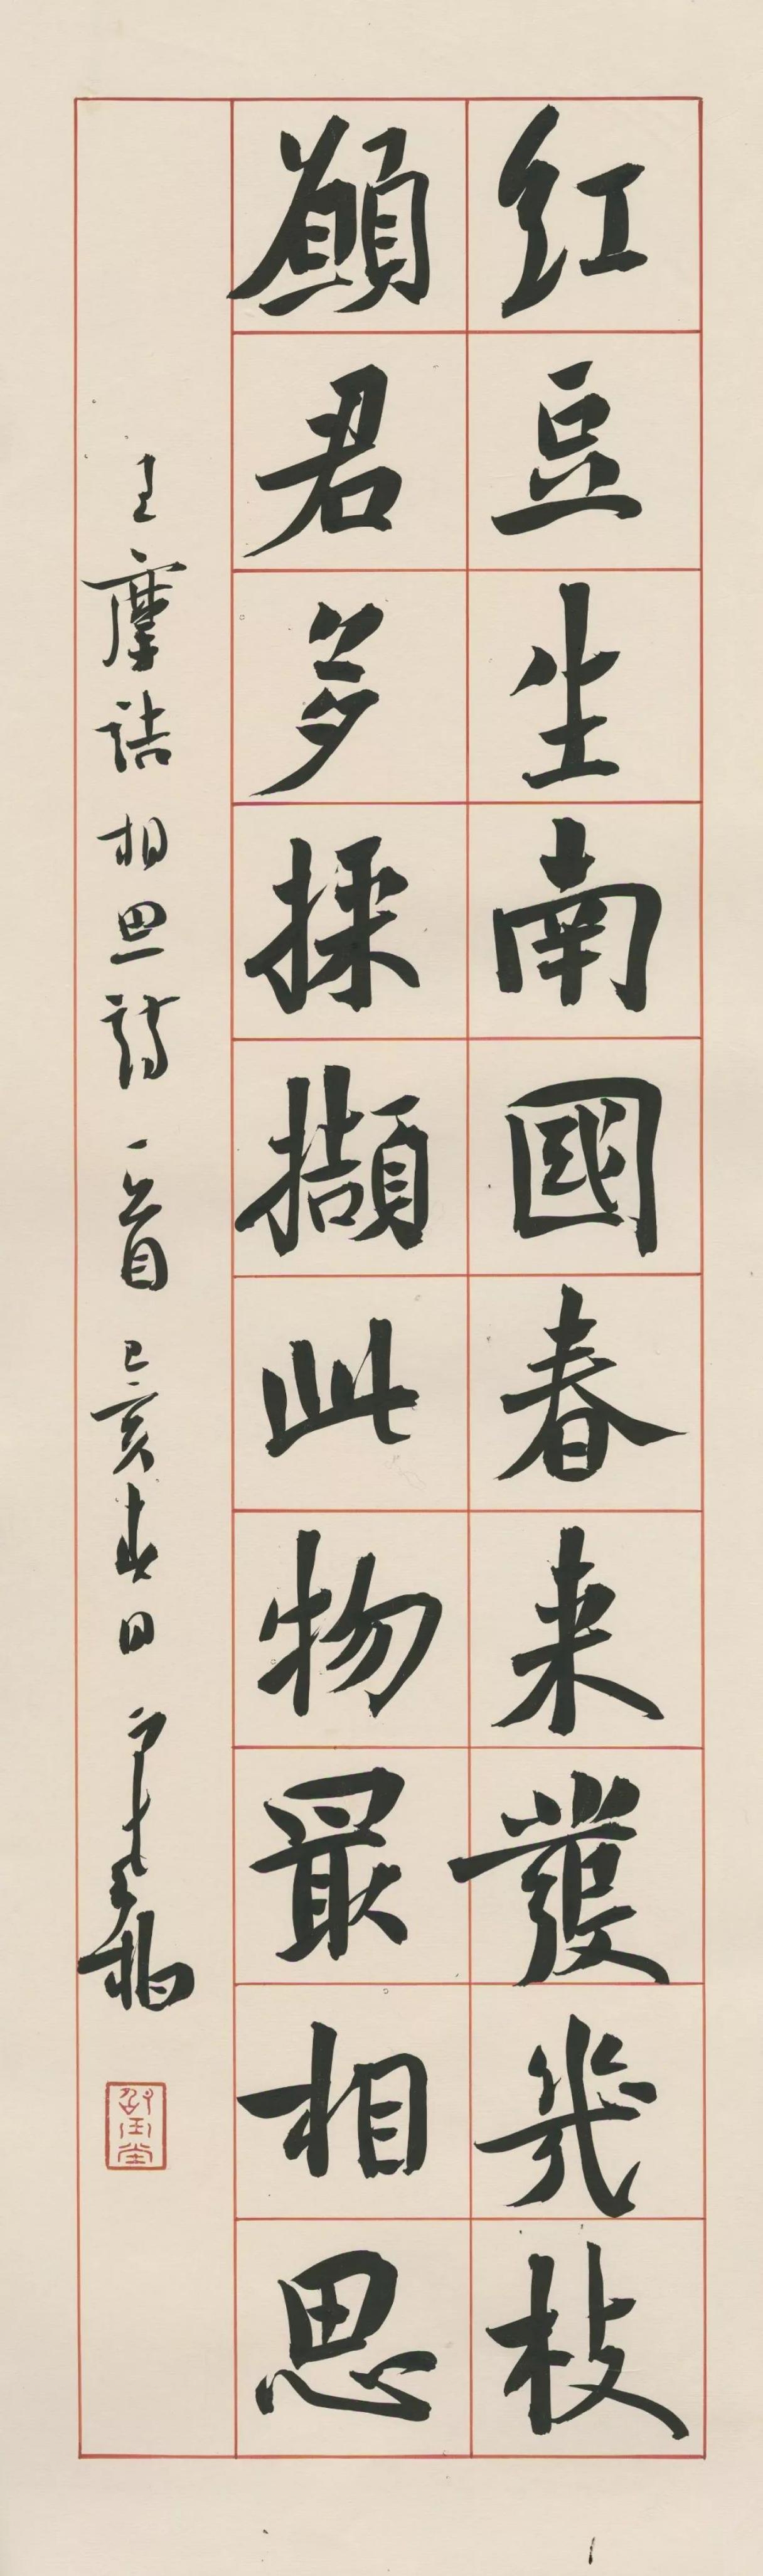 红豆生南國春来發幾枝
願君多採擷此物最相思
王摩詰相思詩一首己亥春日